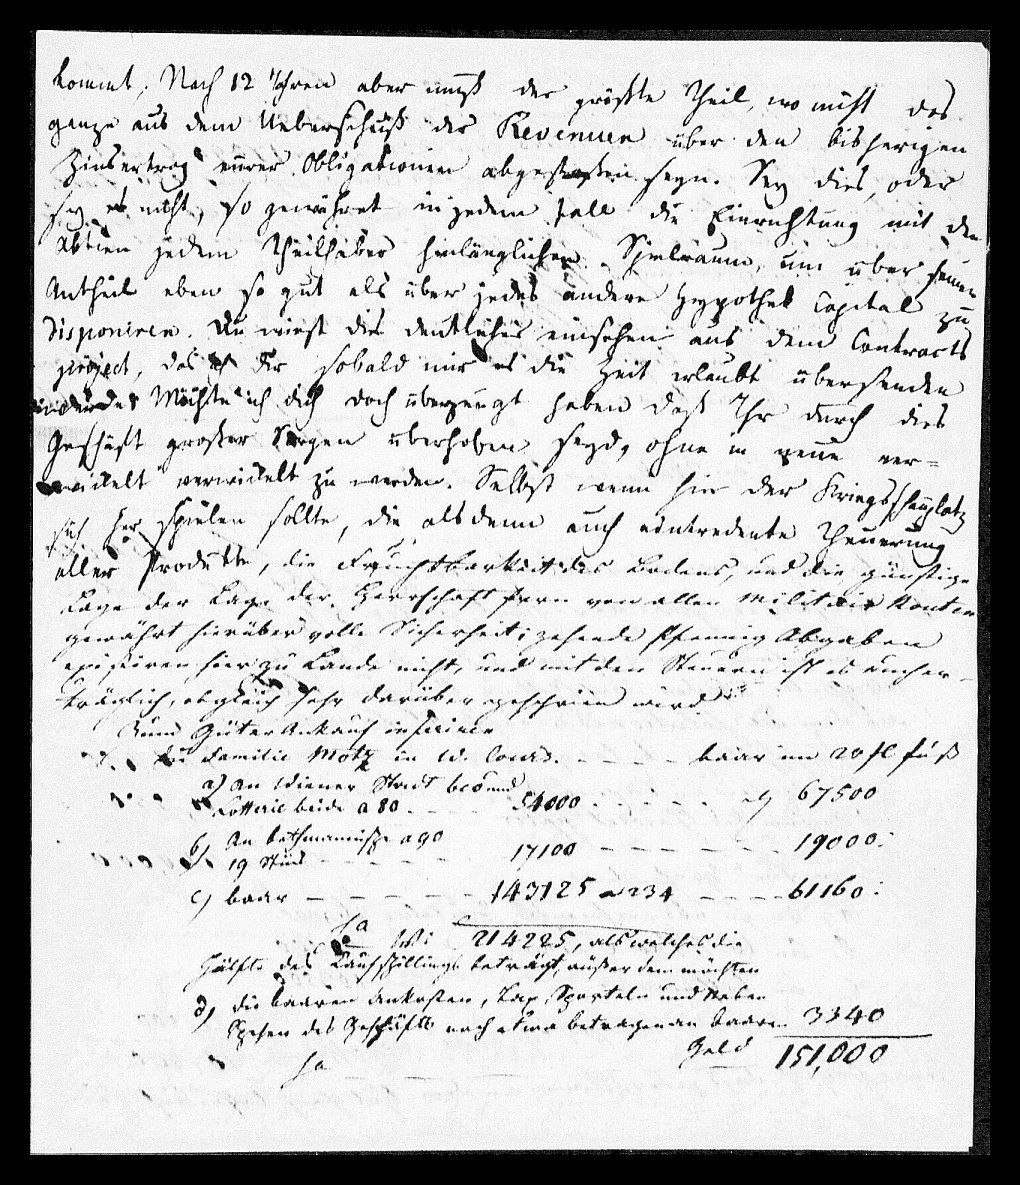 kommt, Nach 12 Jahren aber muß der größte Theil, wo nicht das
ganze aus dem Ueberschuß der Revenuen über den bisherigen
Zinsertrag eurer Obligationen abgestoßen seyn. Sey dies, oder
sey es nicht, so gewähret in jedem Fall die Einrichtung mit den
Aktien jedem Theilhaber hinlänglichen Spielraum, um über seinen
Antheil eben so gut als über jedes andere Hypothek Capital zu
disponiren. Du wirst dies deutlicher einsehen aus dem Contracts
project, das ich dir sobald mir es die Zeit erlaubt übersenden
Möchte ich dich doch überzeugt haben daß Ihr durch dies
Geschäft großer Sorgen überhoben seyd, ohne in neue ver=
wickelt verwickelt zu werden. Selbst wenn hier der Kriegsschauplatz
sich her spielen sollte, die alsdenn auch eintretende Theuerung
aller Produkte, die Fruchtbarkeit des Bodens, und die günstige
Lage der Lage der Herrschaft fern von allen Militair Routen
gewährt hierüber volle Sicherheit; zehende Pfennig Abgaben
existiren hier zu Lande nicht, und mit den Steuern ist es auch er-
träglich, obgleich sehr darüber geschrien wird
Zum Güter Ankauf
die Familie Motz in W. Cours. - - - - baar im 20 fl fuß
a) An Wiener Stadt bco und
Lotterie beide a 80. - - - 54000 - - - - - 67500
b) An bethmännische a 90
19 Stück - - - - 17100 - - - - - - 19000.
c) baar - - - - - 143125 a 234 - - - - 61160.
Sa Wi 214225, als welches die
Hälfte des Kaufschillings beträgt, außer dem möchten
d) die baaren Unkosten, Tax, Sporteln und Neben
Spesen des Geschäfts noch etwa betragen an baarem 3340
Geld
Sa - - - - - 151,000